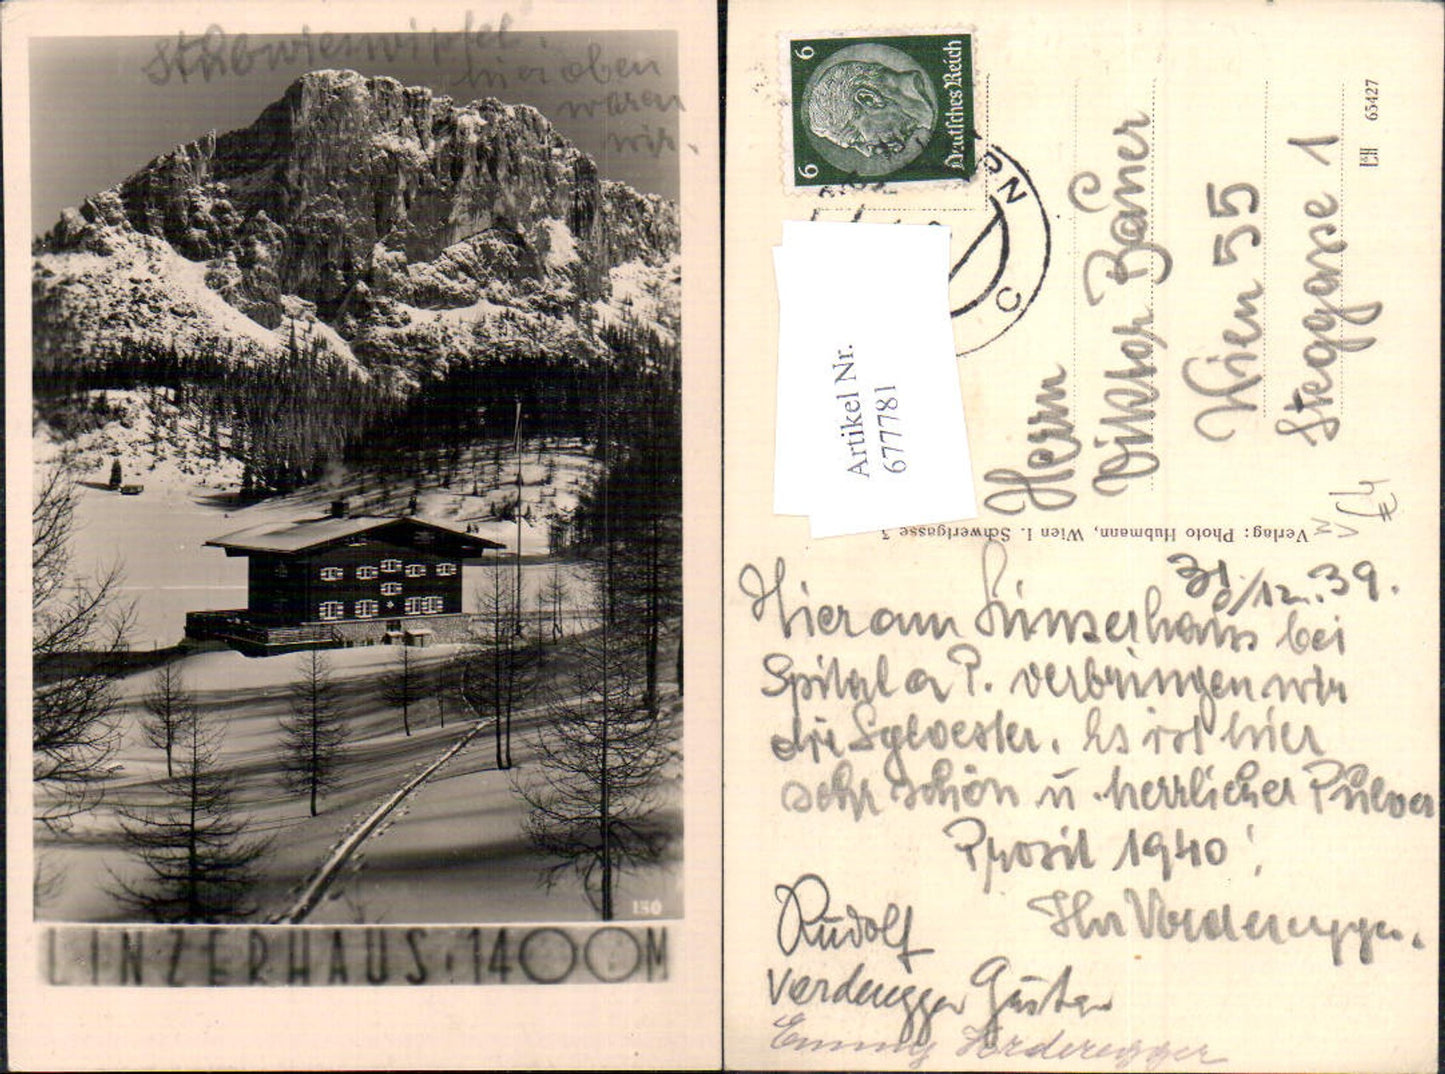 Stubwieswipfel.
hier oben
waren
wir.
150
LINZERHAUS. 1400M
6
6
Deutsches Reich
C
Artikel Nr.
677781
Herrn
Viktor
Wien 55
Steggasse 1
65427
Verlag: Photo Hubmann, Wien I. Schwertgasse 3
31/12.39.
Hier am Linzerhaus bei
Spital a P. verbringen wir
die Sylvester. Es ist hier
sehr schön u. herrlicher Pulver
Prosit 1940!
Ihr Vorderegger.
Rudolf
Vorderegger Gustav
Emmy Vorderegger